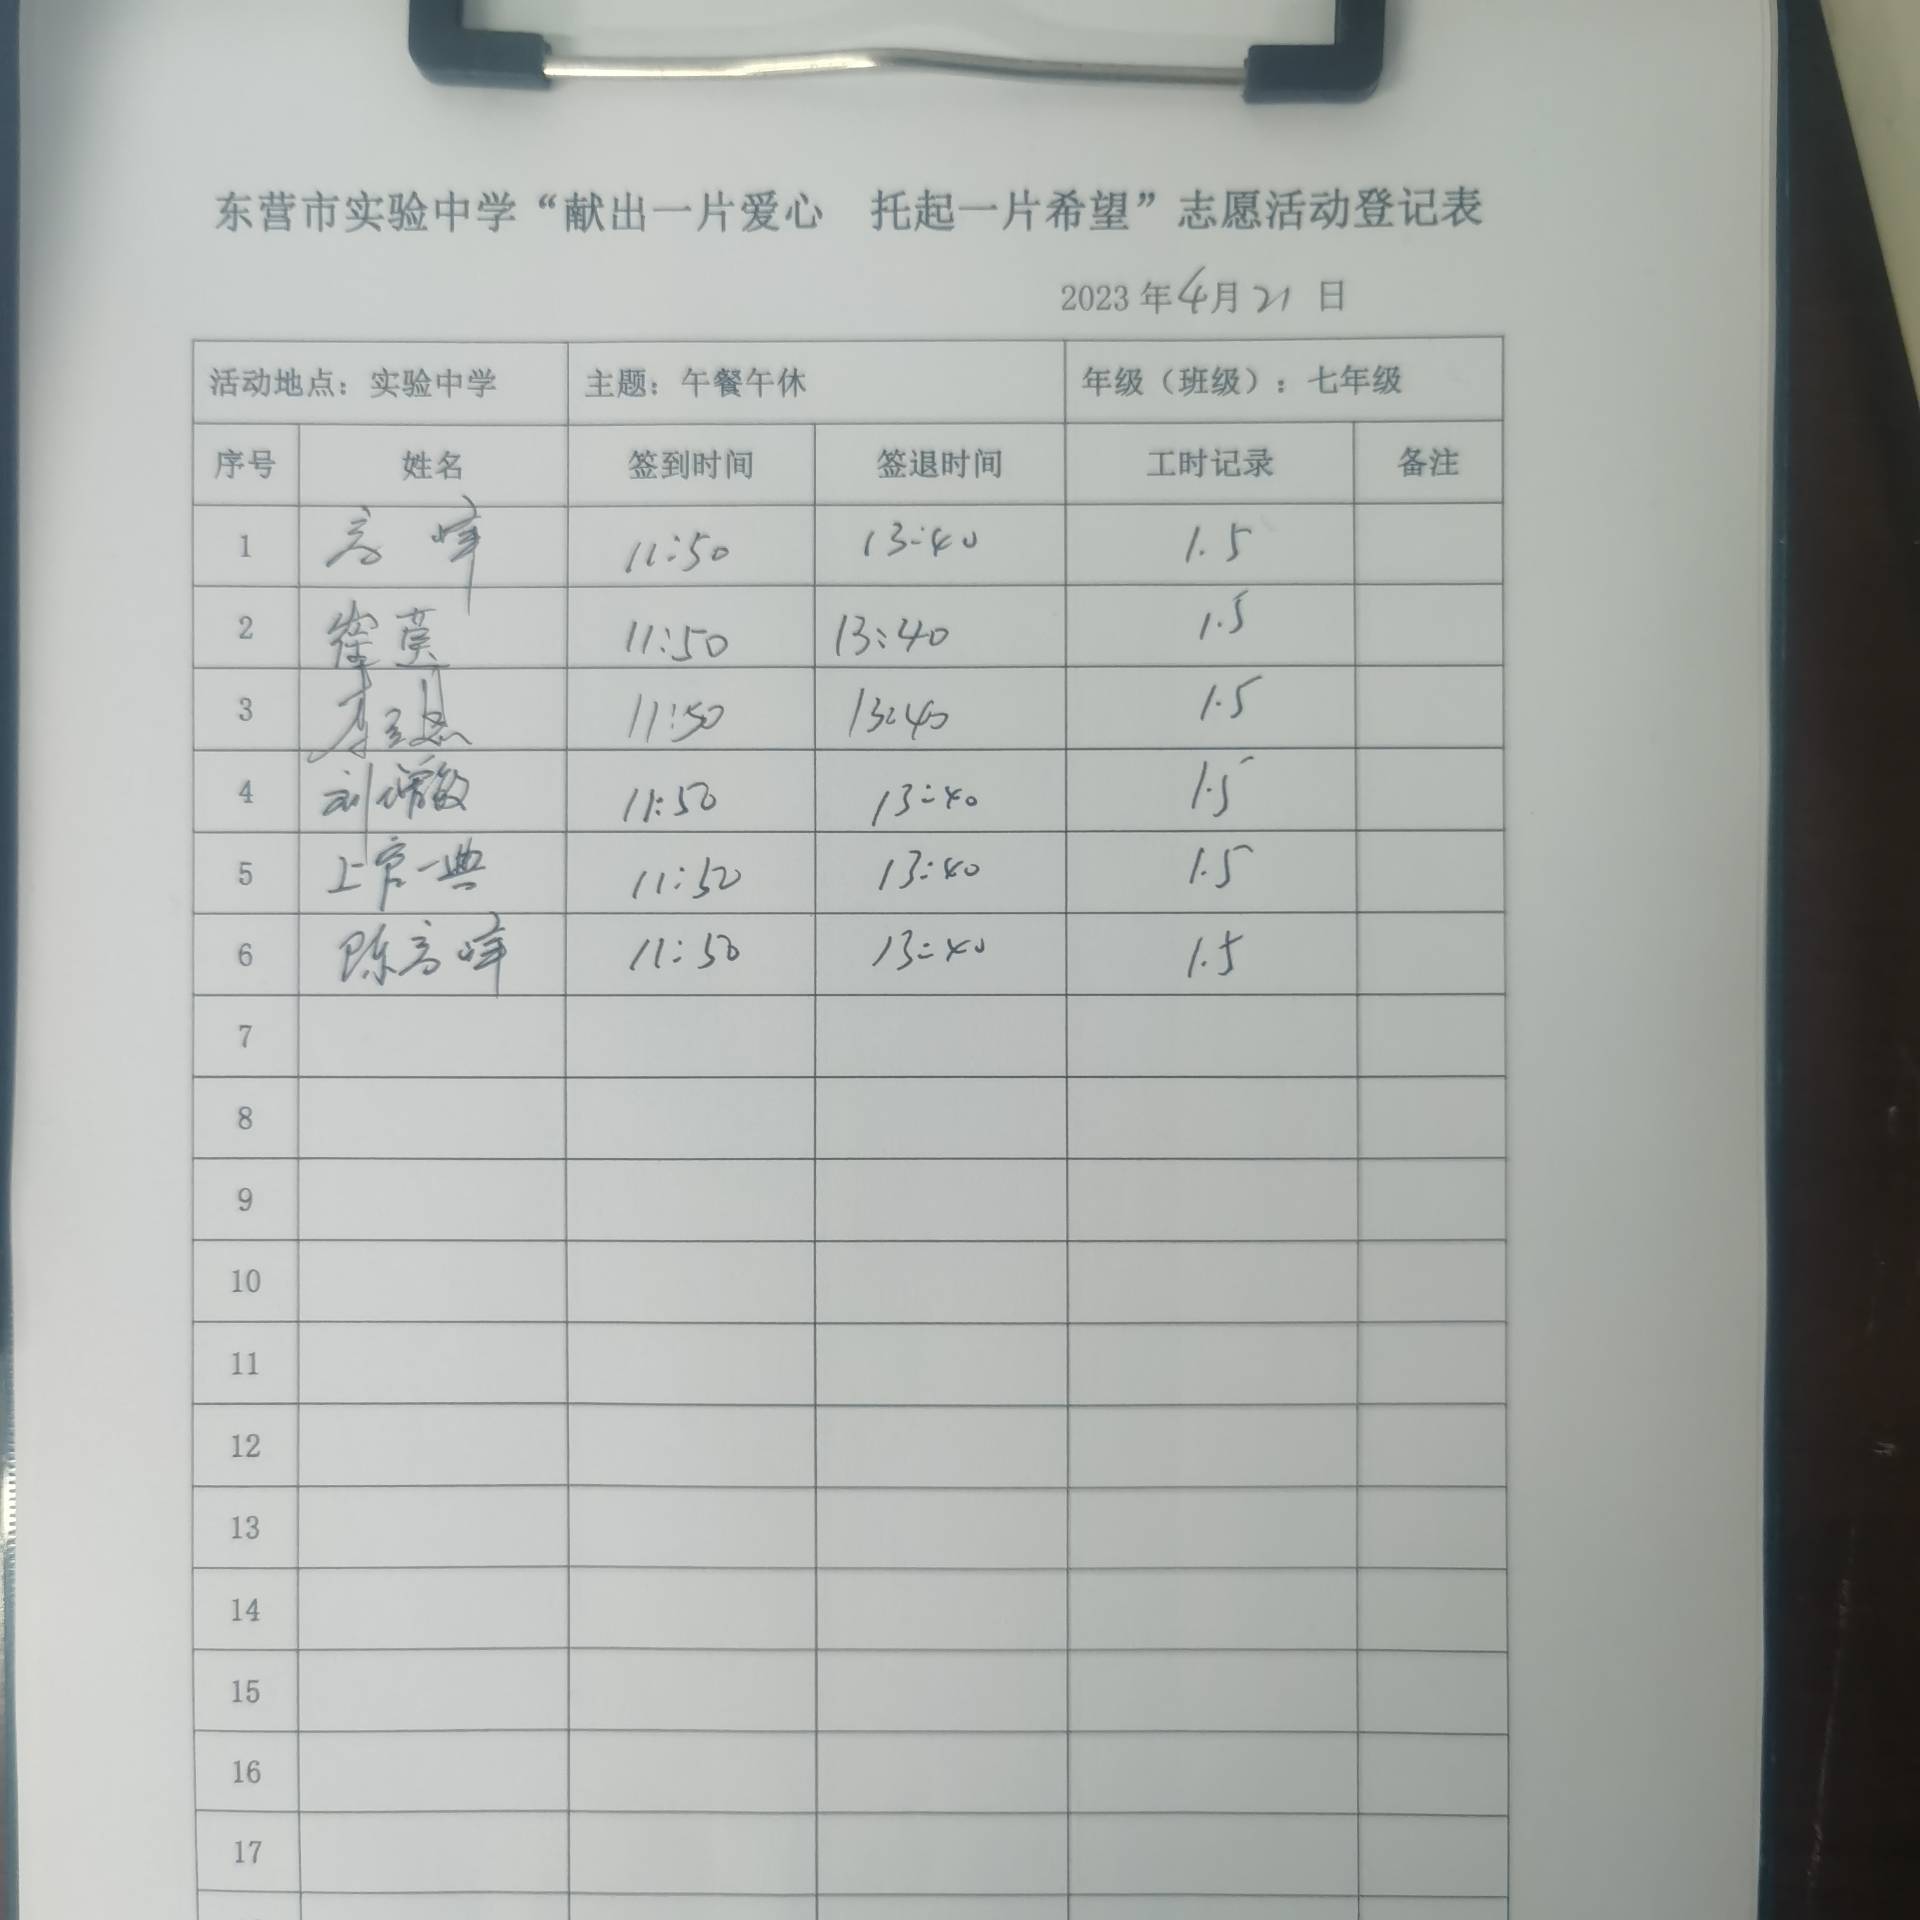 东营市实验中学“献出一片爱心 托起一片希望”志愿活动登记表
2023年4月21日
活动地点：实验中学 主题：午餐午休 年级（班级）：七年级
序号 姓名 签到时间 签退时间 工时记录 备注
1 高峰 11:50 13:40 1.5
2 11:50 13:40 1.5
3 11:50 13:40 1.5
4 刘 敏 11:50 13:40 1.5
5 上官一典 11:50 13:40 1.5
6 陈高峰 11:50 13:40 1.5
7
8
9
10
11
12
13
14
15
16
17